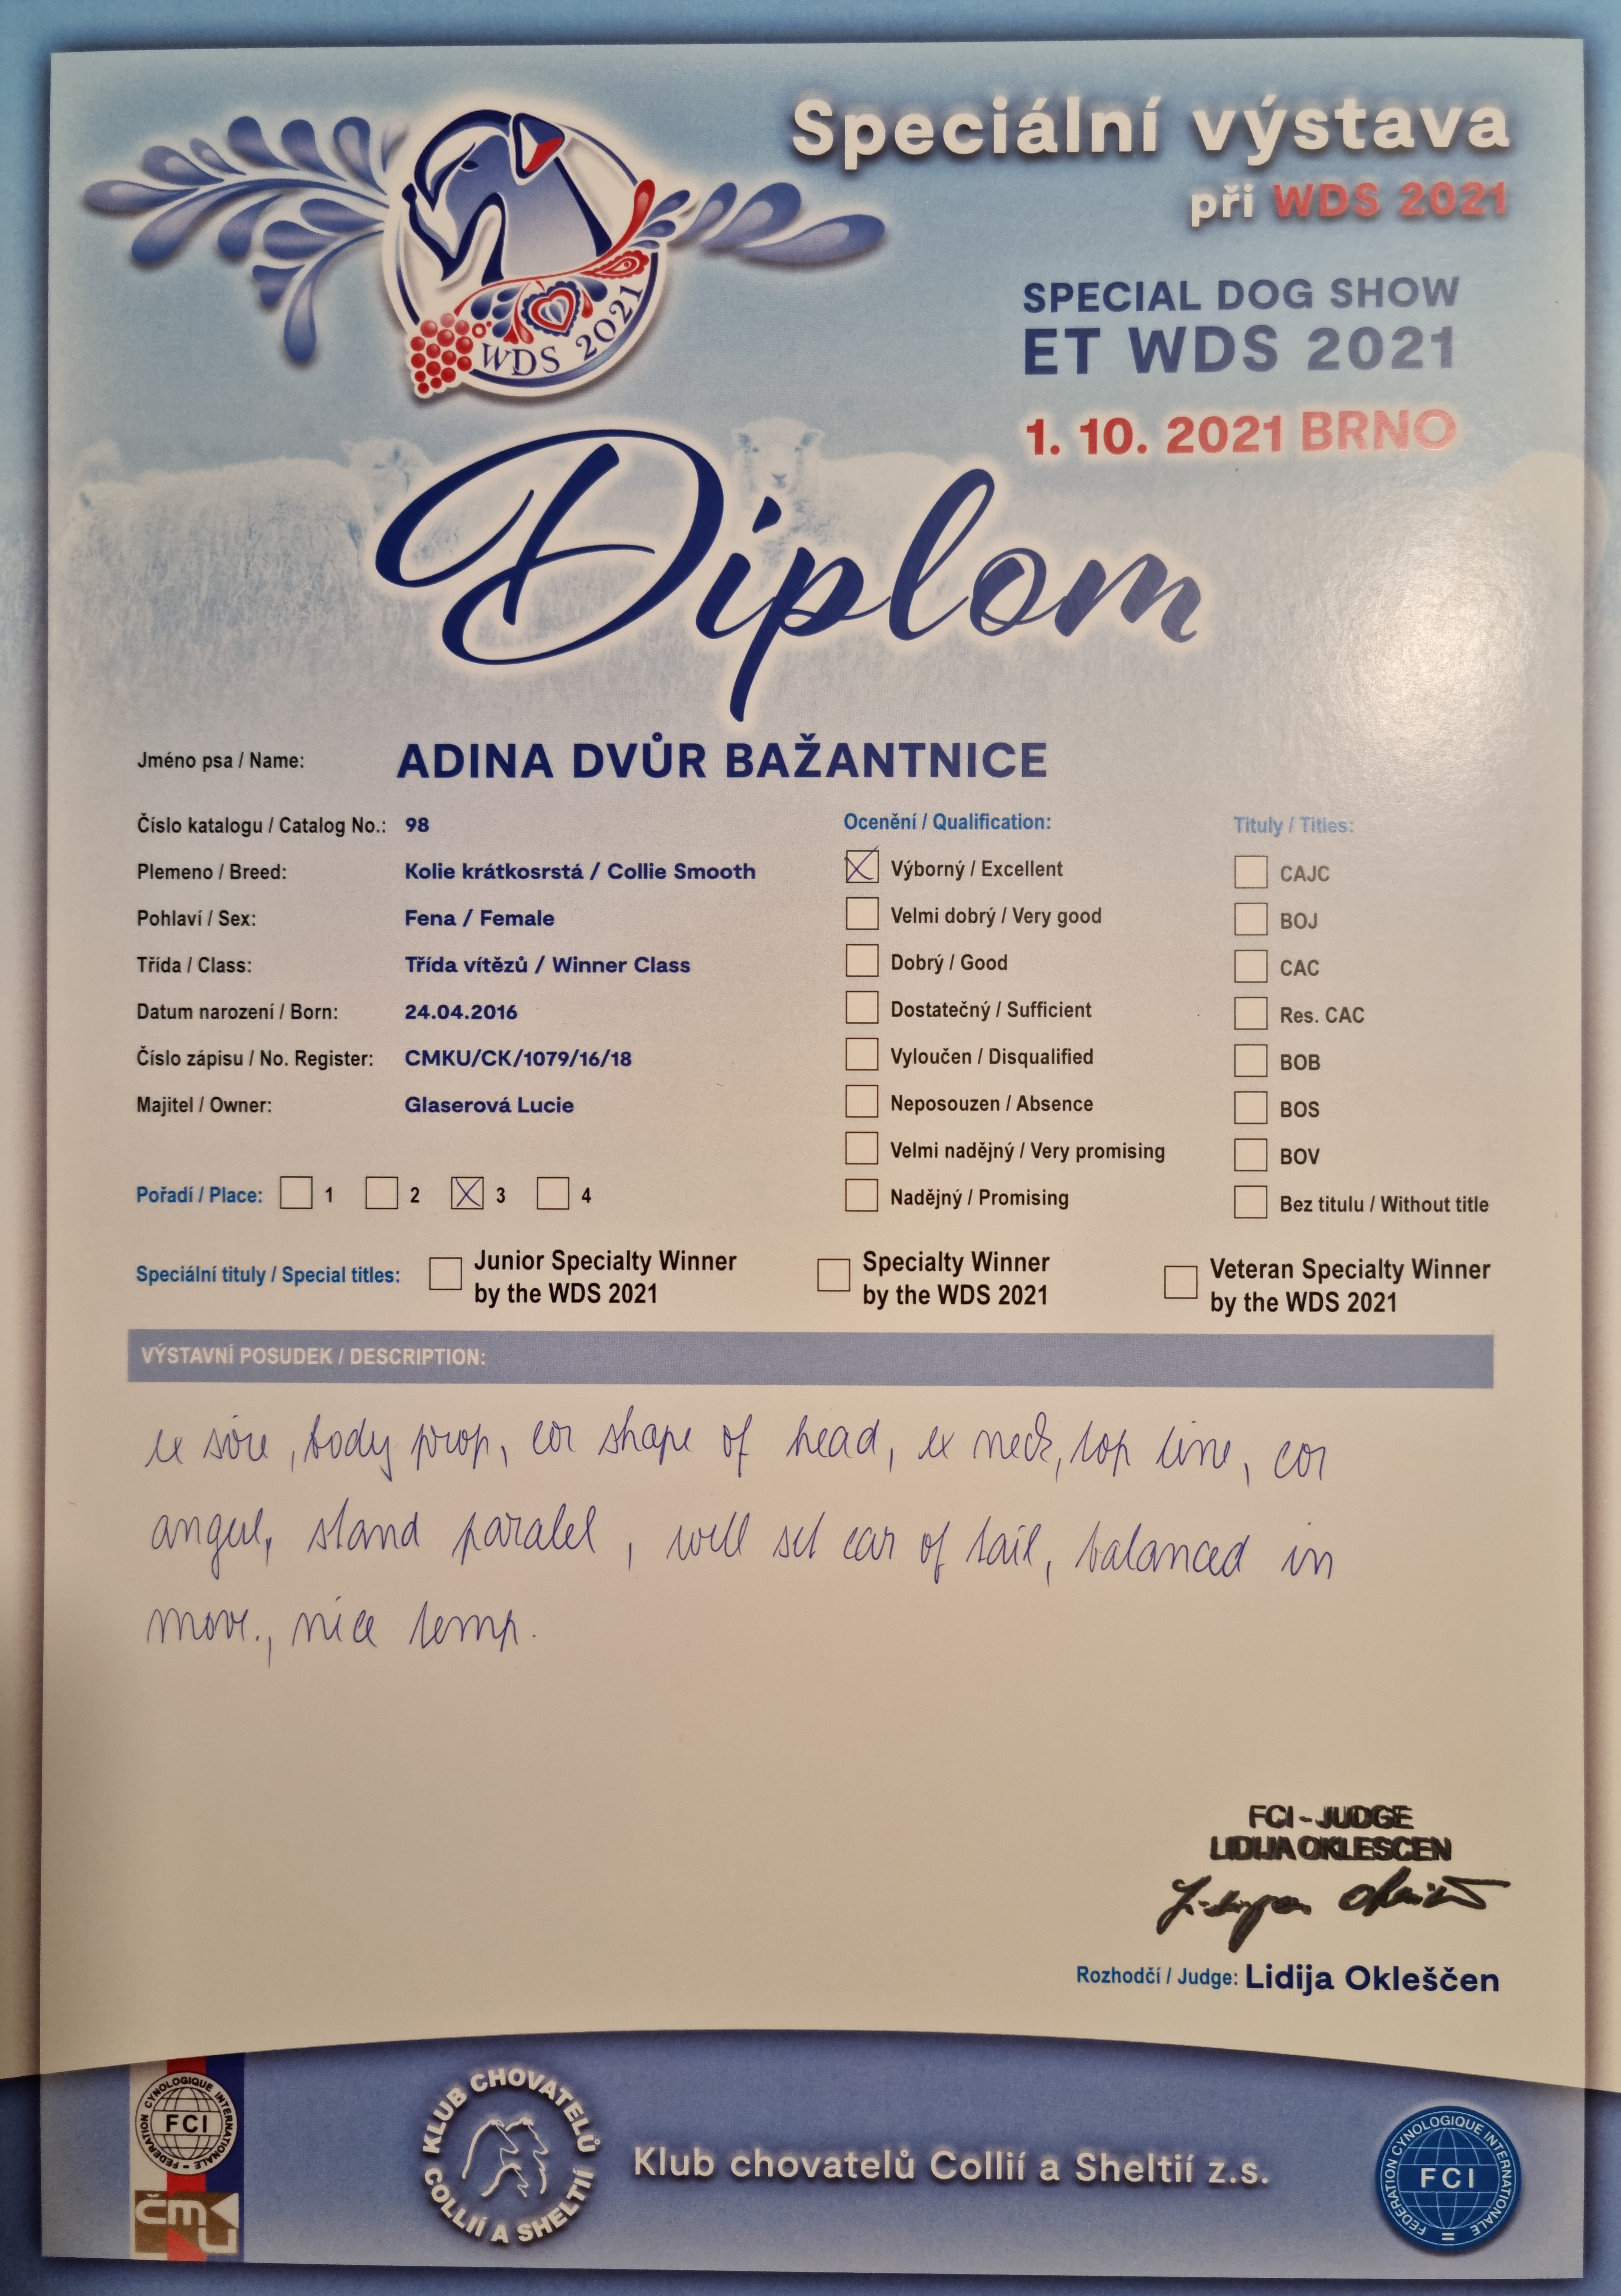 Speciální výstava
při WDS 2021
SPECIAL DOG SHOW
ET WDS 2021
1. 10. 2021 BRNO
WDS 2021
Diplom
Jméno psa / Name: ADINA DVŮR BAŽANTNICE
Číslo katalogu / Catalog No.: 98
Plemeno / Breed: Kolie krátkosrstá / Collie Smooth
Pohlaví / Sex: Fena / Female
Třída / Class: Třída vítězů / Winner Class
Datum narození / Born: 24.04.2016
Číslo zápisu / No. Register: CMKU/CK/1079/16/18
Majitel / Owner: Glaserová Lucie
Pořadí / Place: 1 2 3 4
Ocenění / Qualification:
Výborný / Excellent
Velmi dobrý / Very good
Dobrý / Good
Dostatečný / Sufficient
Vyloučen / Disqualified
Neposouzen / Absence
Velmi nadějný / Very promising
Nadějný / Promising
Tituly / Titles:
CAJC
BOJ
CAC
Res. CAC
BOB
BOS
BOV
Bez titulu / Without title
Speciální tituly / Special titles:
Junior Specialty Winner
by the WDS 2021
Specialty Winner
by the WDS 2021
Veteran Specialty Winner
by the WDS 2021
VÝSTAVNÍ POSUDEK / DESCRIPTION:
ex , body prop, cor shape of head, ex neck, top line, cor
angul, stand paralel, well set car of tail, balanced in
move., nice temp.
FCI - JUDGE
LIDIJA OKLESCEN
Rozhodčí / Judge: Lidija Okleščen
FEDERATION CYNOLOGIQUE INTERNATIONALE
FCI
ČMKU
KLUB CHOVATELŮ
COLLIÍ A SHELTIÍ
Klub chovatelů Collií a Sheltií z.s.
FEDERATION CYNOLOGIQUE INTERNATIONALE
FCI